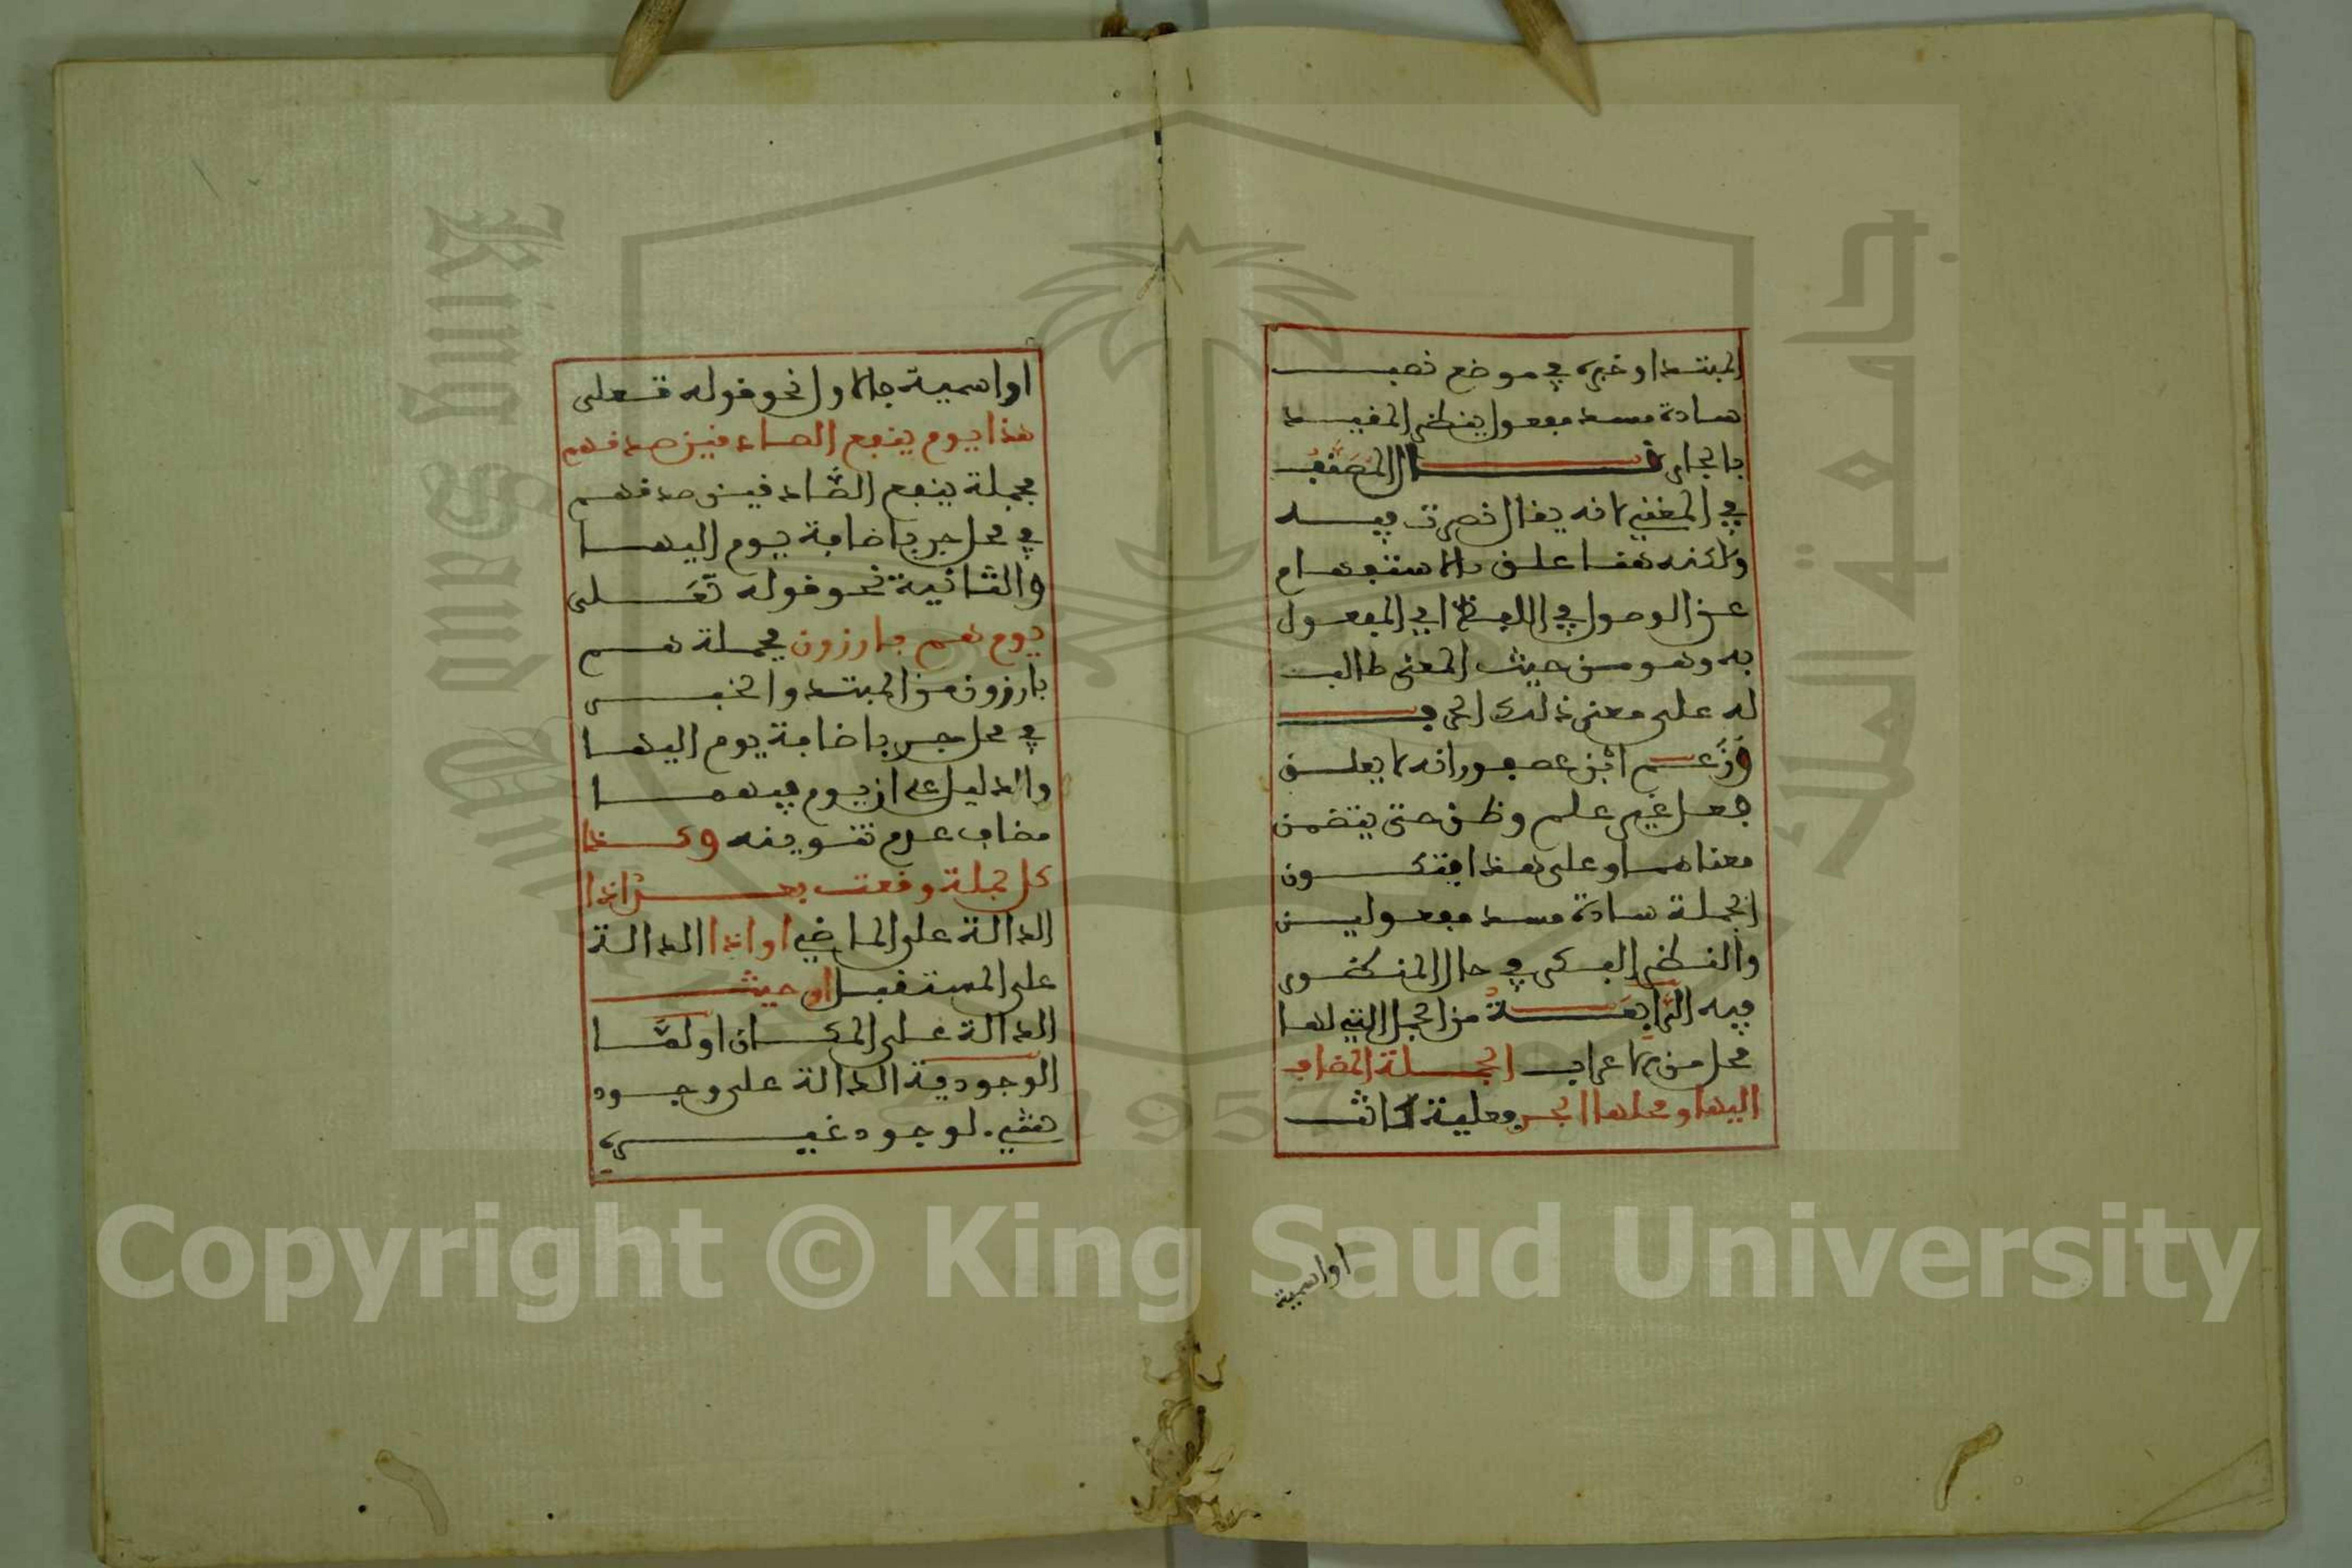 المبتدا وخبره في موضع نصب
سادة مسد مفعول ينظر المقيد
بالجار قال المصنف
في المغني لانه يقال نظرت فيه
ولكنه هنا علق بالاستفهام
عن الوصول في اللفظ الى المفعول
به وهو من حيث المعنى طالب
له على معنى ذلك الحرف
وزعم ابن عصفور انه لا يعلق
فعل غير علم وظن حتى يتضمن
معناهما وعلى هذا فتكون
الجملة سادة مسد مفعولين
والنظر الفكر في حال المنظور
فيه الرابعة من الجمل التي لها
محل من الاعراب الجملة المضاف
اليها ومحلها الجر فعلية كانت
اواسمية
او اسمية فالاول نحو قوله تعلى
هذا يوم ينفع الصادقين صدقهم
فجملة ينفع الصادقين صدقهم
في محل جر باضافة يوم اليها
والثانية نحو قوله تعلى
يوم هم بارزون فجملة هم
بارزون من المبتدا والخبر
في محل جر باضافة يوم اليها
والدليل على ان يوم فيهما
مضاف عدم تنوينه وكذا
كل جملة وقعت بعد اذ
الدالة على الماضي او اذا الدالة
على المستقبل او حيث
الدالة على المكان او لما
الوجودية الدالة على وجود
شيء لوجود غيره
Copyright © King Saud University
King Saud University
جامعة الملك سعود
1957